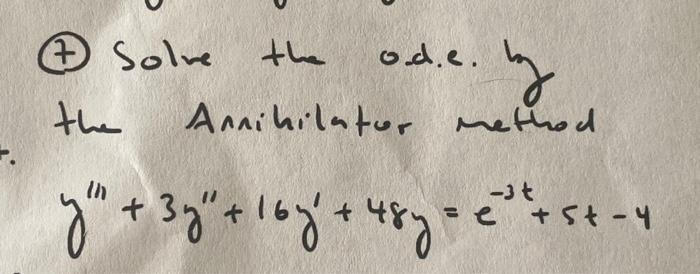 ⑦ Solve the o.d.e. by
the Annihilator method
y''' + 3y'' + 16y' + 48y = e^-3t + 5t - 4